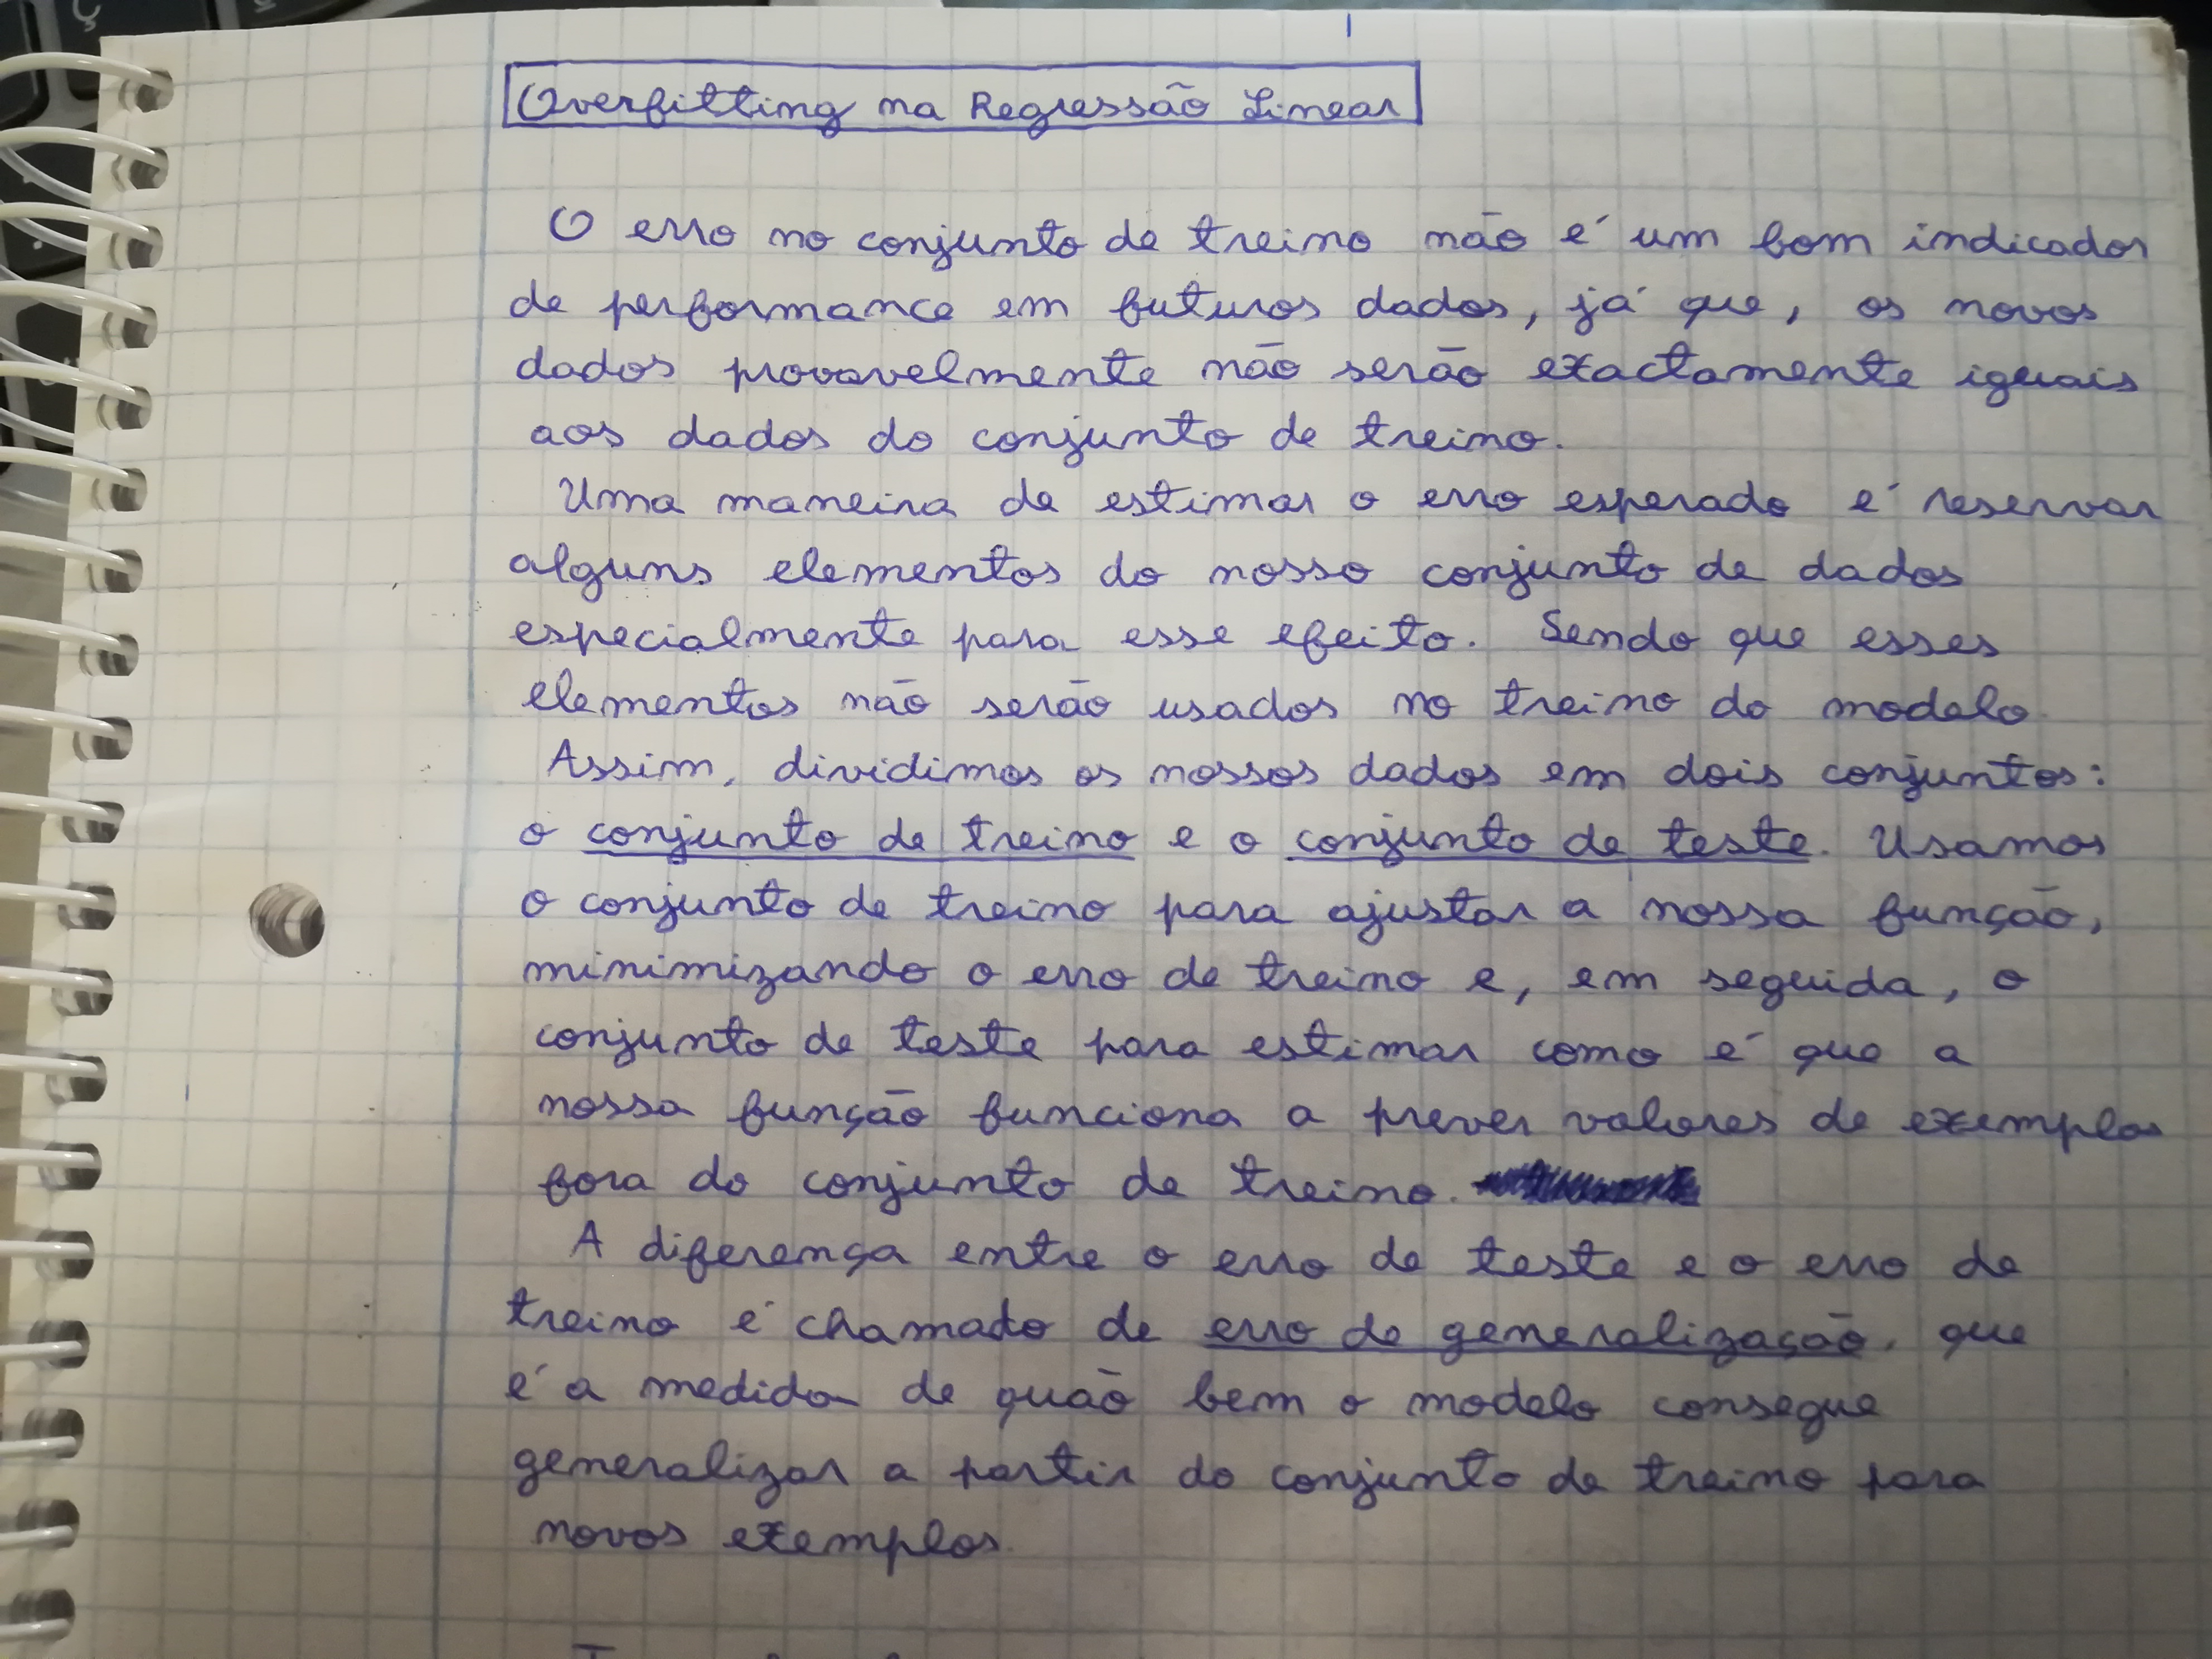 Overfitting na Regressão Linear
O erro no conjunto de treino não é um bom indicador
de performance em futuros dados, já que, os novos
dados provavelmente não serão exactamente iguais
aos dados do conjunto de treino.
Uma maneira de estimar o erro esperado é reservar
alguns elementos do nosso conjunto de dados
especialmente para esse efeito. Sendo que esses
elementos não serão usados no treino do modelo.
Assim, dividimos os nossos dados em dois conjuntos:
o conjunto de treino e o conjunto de teste. Usamos
o conjunto de treino para ajustar a nossa função,
minimizando o erro de treino e, em seguida, o
conjunto de teste para estimar como é que a
nossa função funciona a prever valores de exemplos
fora do conjunto de treino.
A diferença entre o erro de teste e o erro de
treino é chamado de erro de generalização, que
é a medida de quão bem o modelo consegue
generalizar a partir do conjunto de treino para
novos exemplos.